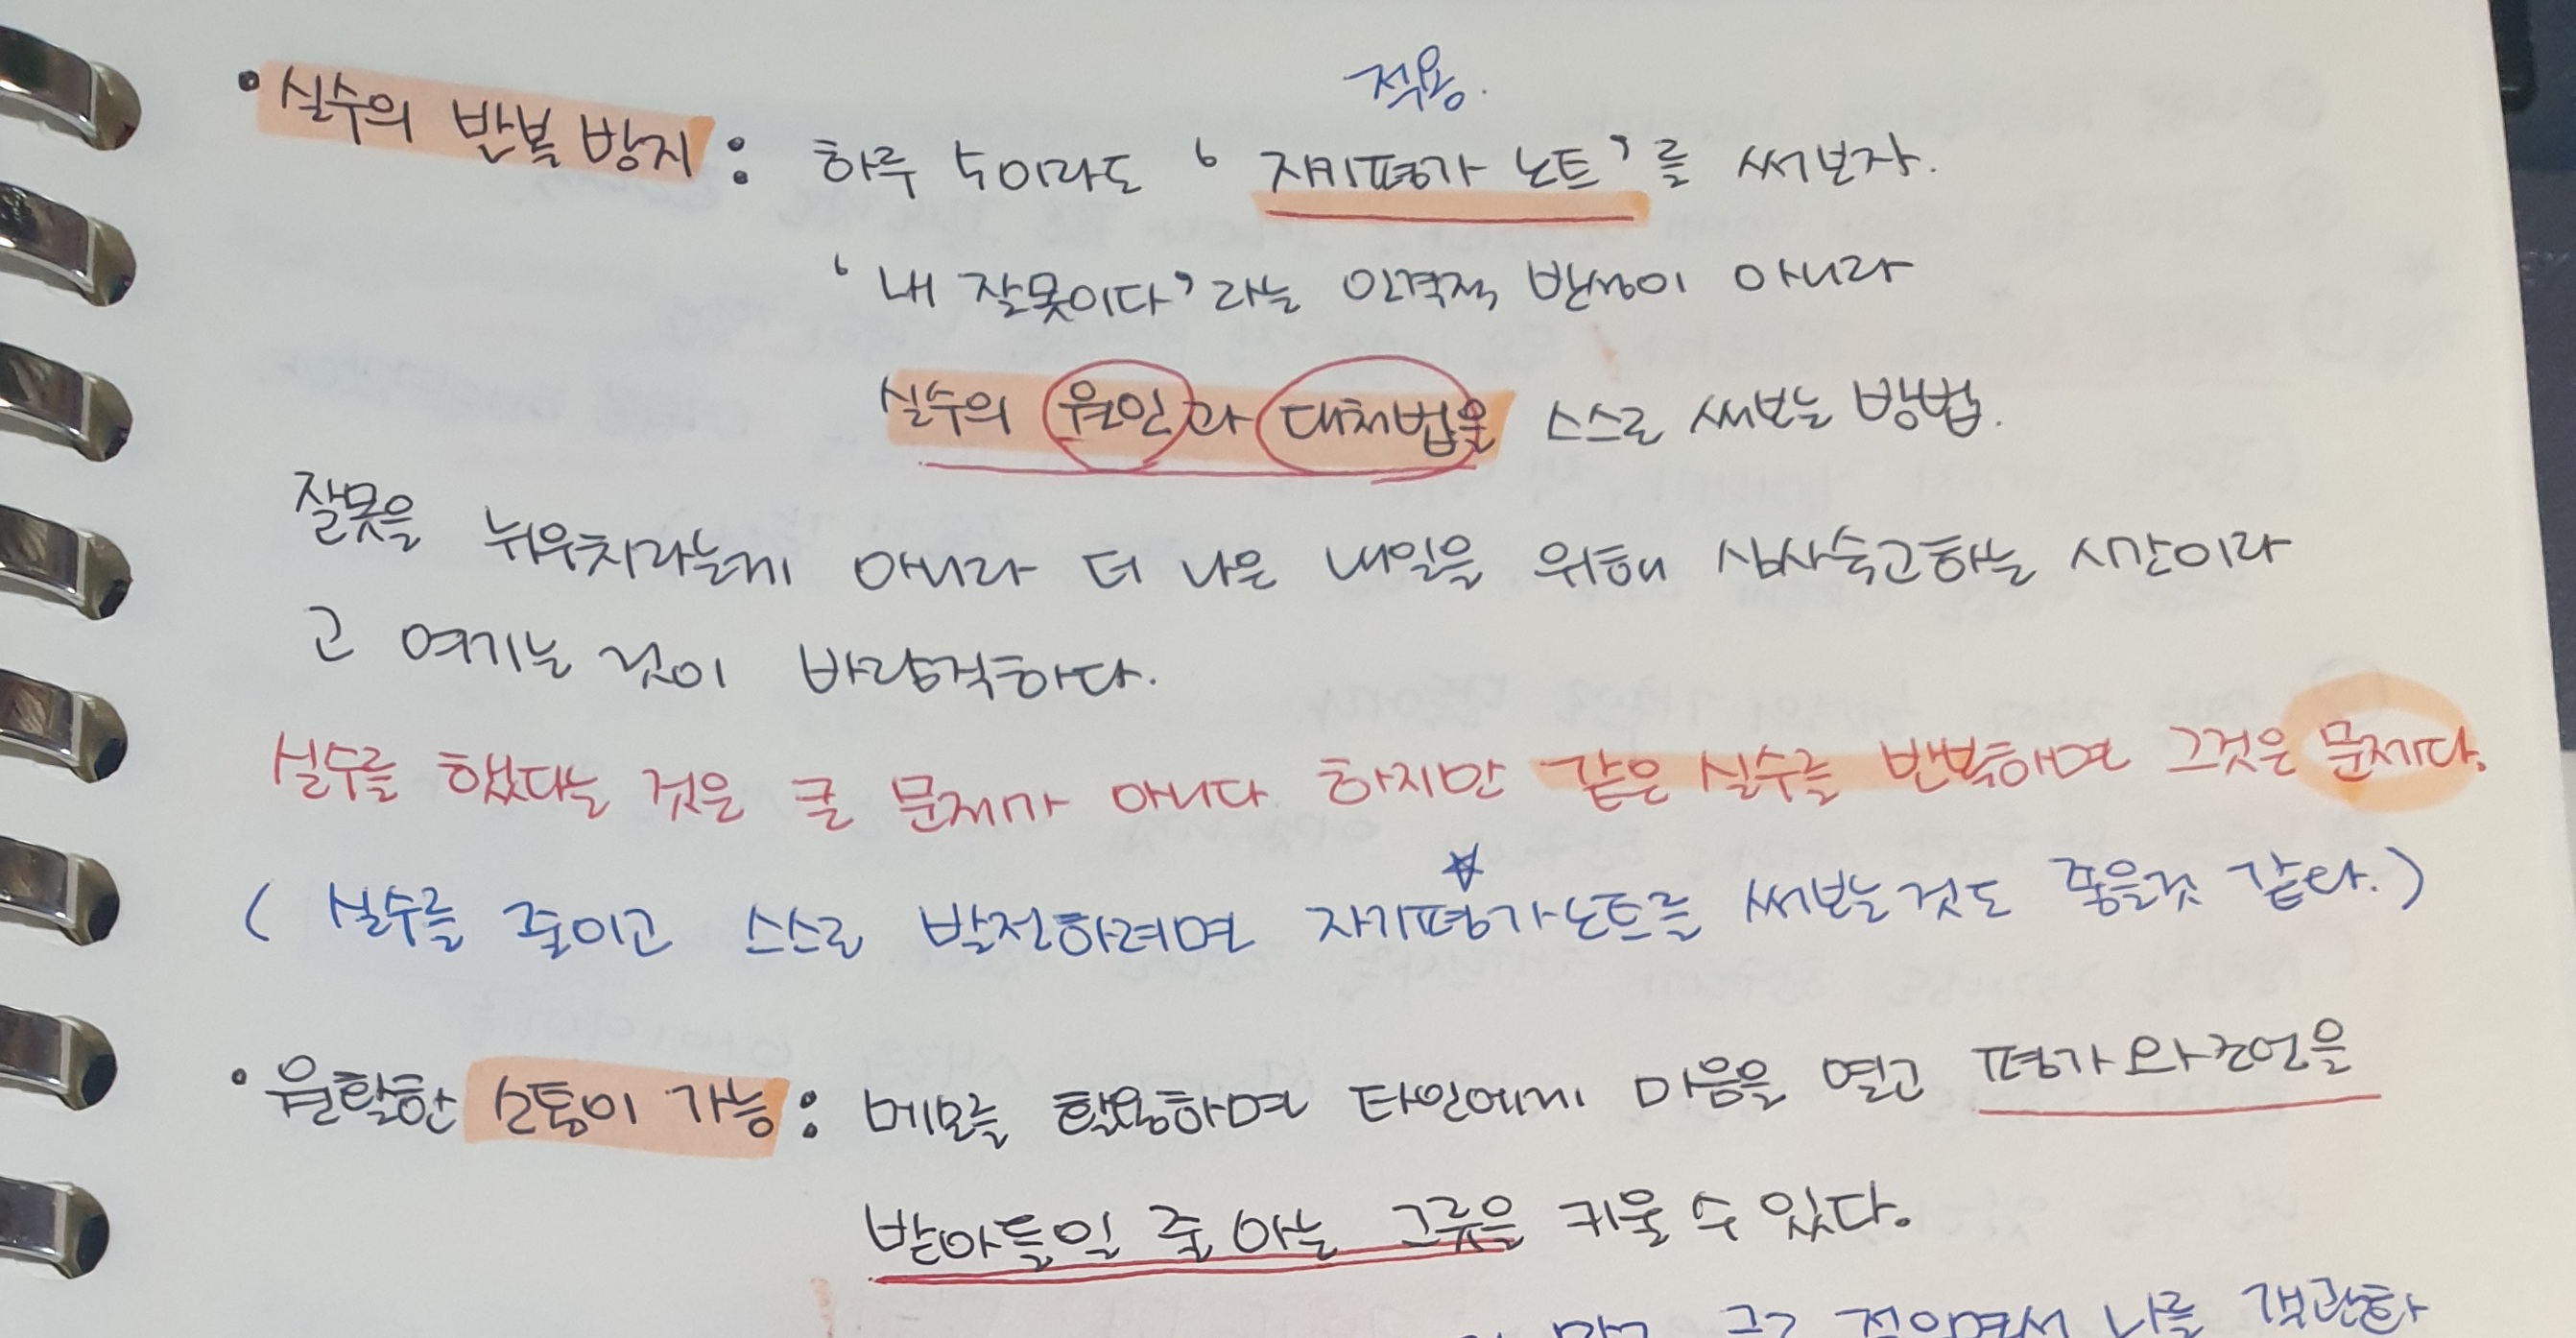 적용.
• 실수의 반복 방지 : 하루 수이라도 ‘자기평가 노트’를 써보자.
‘내 잘못이다’라는 인격적 반성이 아니라
실수의 원인과 대처법을 스스로 써보는 방법.
잘못을 뉘우치라는게 아니라 더 나은 내일을 위해 심사숙고하는 시간이라
고 여기는 것이 바람직하다.
실수를 했다는 것은 큰 문제가 아니다 하지만 같은 실수를 반복하면 그것은 문제다.
( 실수를 줄이고 스스로 발전하려면 자기평가노트를 써보는것도 좋을것 같다.)
• 원활한 소통이 가능 : 메모를 활용하면 타인에게 마음을 열고 평가와 조언을
받아들일 줄 아는 그릇을 키울 수 있다.
적으면서 나를 객관화